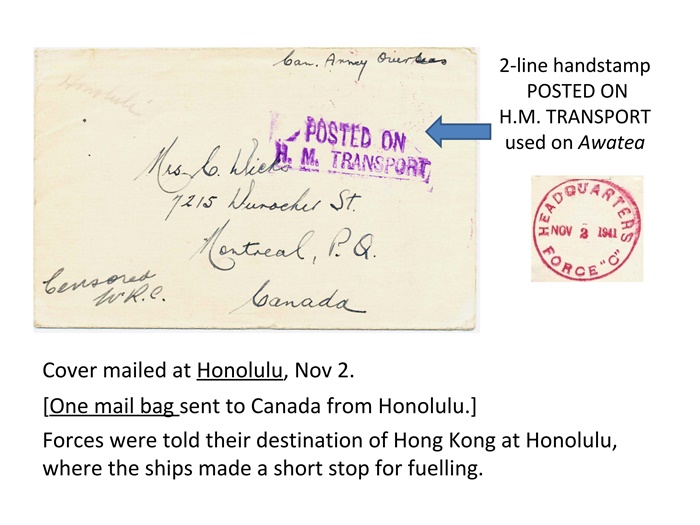 Can. Army Overseas
Honolulu
POSTED ON
H. M. TRANSPORT
Mrs. C. Wicks
7215 Durocher St.
Montreal, P.Q.
Canada
Censored
W.R.C.
2-line handstamp
POSTED ON
H.M. TRANSPORT
used on Awatea
HEADQUARTERS
NOV 2 1941
FORCE "C"
Cover mailed at Honolulu, Nov 2.
[One mail bag sent to Canada from Honolulu.]
Forces were told their destination of Hong Kong at Honolulu,
where the ships made a short stop for fuelling.